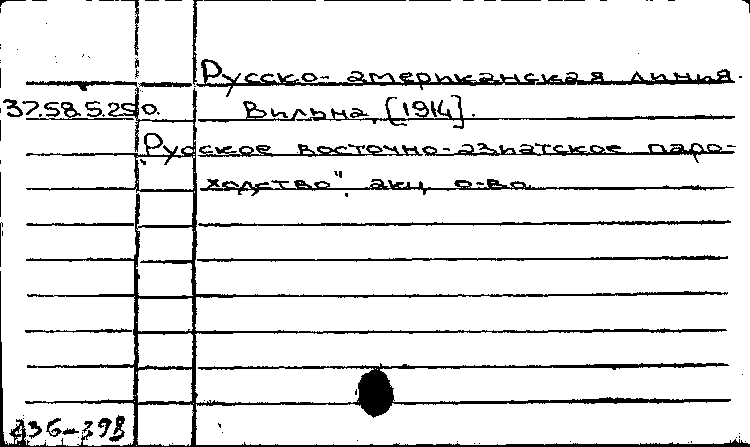 Русско-американская линия.
37.58.5.250. Вильна, [1914].
"Русское восточно-азиатское паро-
ходство", акц. о-во
836-398